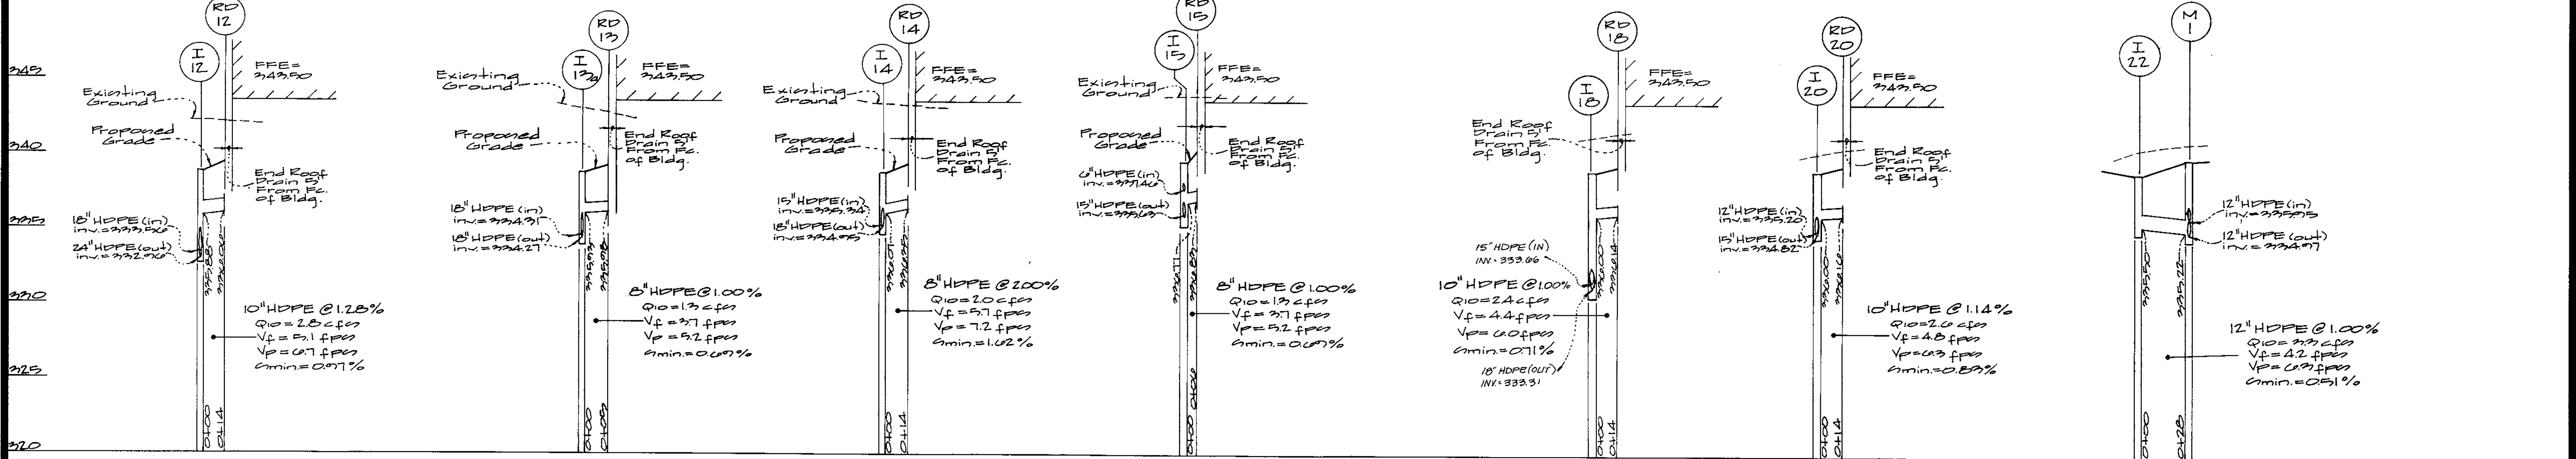 RD
12
I
12
FFE=
343.50
Existing
Ground
Proposed
Grade
End Roof
Drain 5'
From Fc.
of Bldg.
18" HDPE (in)
inv.=333.56
24" HDPE (out)
inv.=332.96
10" HDPE @ 1.28%
Q10=2.8 cfs
Vf=5.1 fps
Vp=6.7 fps
Smin.=0.97%
0+00
0+14
RD
13
I
13a
FFE=
343.50
Existing
Ground
Proposed
Grade
End Roof
Drain 5'
From Fc.
of Bldg.
18" HDPE (in)
inv.=334.31
18" HDPE (out)
inv.=334.27
8" HDPE @ 1.00%
Q10=1.3 cfs
Vf=3.7 fps
Vp=5.2 fps
Smin.=0.69%
0+00
RD
14
I
14
FFE=
343.50
Existing
Ground
Proposed
Grade
End Roof
Drain 5'
From Fc.
of Bldg.
15" HDPE (in)
inv.=335.34
18" HDPE (out)
inv.=334.95
8" HDPE @ 2.00%
Q10=2.0 cfs
Vf=5.7 fps
Vp=7.2 fps
Smin.=1.62%
0+00
0+14
RD
15
I
15
FFE=
343.50
Existing
Ground
Proposed
Grade
End Roof
Drain 5'
From Fc.
of Bldg.
6" HDPE (in)
inv.=337.46
15" HDPE (out)
inv.=335.63
8" HDPE @ 1.00%
Q10=1.3 cfs
Vf=3.7 fps
Vp=5.2 fps
Smin.=0.69%
0+00
RD
18
I
18
FFE=
343.50
End Roof
Drain 5'
From Fc.
of Bldg.
15" HDPE (IN)
INV.=333.66
10" HDPE @ 1.00%
Q10=2.4 cfs
Vf=4.4 fps
Vp=6.0 fps
Smin.=0.71%
18" HDPE (OUT)
INV.=333.31
0+00
0+14
RD
20
I
20
FFE=
343.50
End Roof
Drain 5'
From Fc.
of Bldg.
12" HDPE (in)
inv.=335.20
15" HDPE (out)
inv.=334.82
10" HDPE @ 1.14%
Q10=2.6 cfs
Vf=4.8 fps
Vp=6.3 fps
Smin.=0.83%
0+00
0+14
M
1
I
22
12" HDPE (in)
12" HDPE (out)
inv.=334.97
335.22
12" HDPE @ 1.00%
Q10=3.3 cfs
Vf=4.2 fps
Vp=6.3 fps
Smin.=0.51%
0+00
0+28
345
340
335
330
325
320